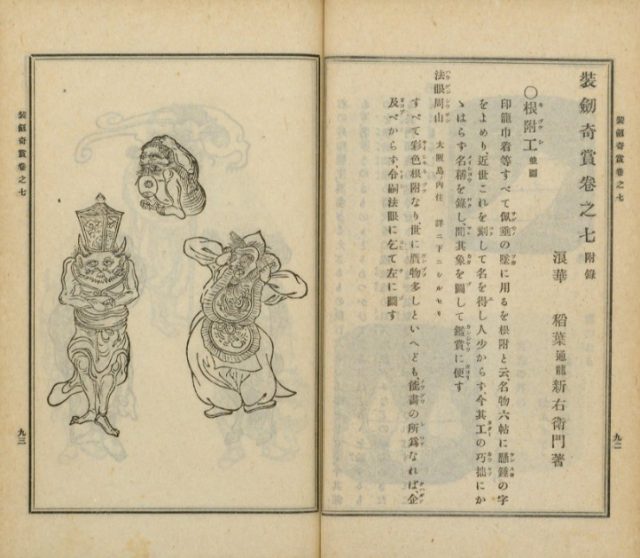 装劒奇賞卷之七
九二
装劒奇賞卷之七附錄
浪華　稻葉通龍新右衛門著
〇根附工並圖
印籠巾着等すべて佩垂の墜に用るを根附と云、名物六帖に懸錘の字
をよめり、近世これを刻して名を得し人少からす今其工の巧拙にか
ゝはらず名稱を錄し、間其象を圖して鑑賞に便す
法眼周山　大阪島内住　詳ニ下ニシルセリ
すべて彩色根附なり、世に贋物多しといへども、畵の所爲なれば企
及べからず、令嗣法眼に乞て左に圖す
装劒奇賞卷之七
九三